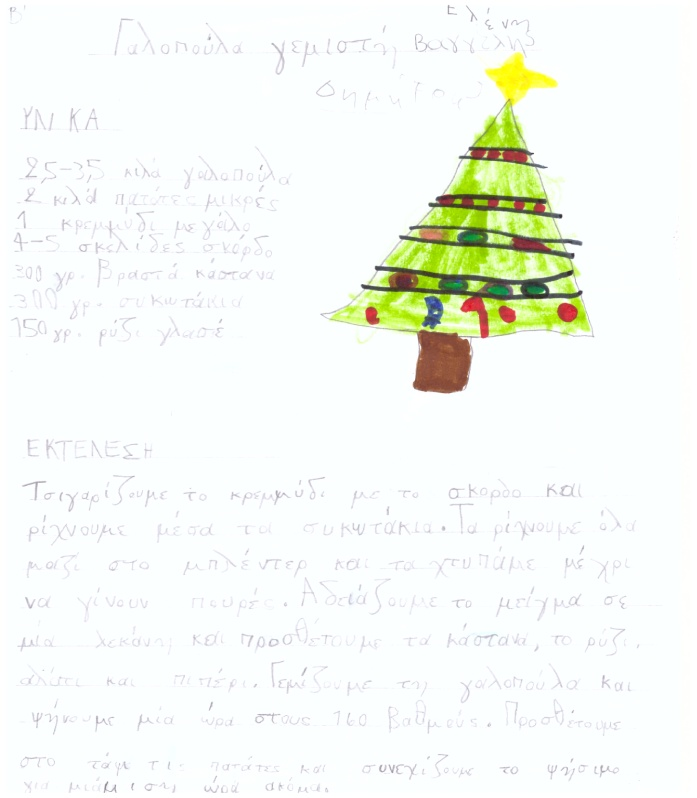 Β'
Ελένη
Γαλοπούλα γεμιστή Βαγγέλης
Δημήτρης
ΥΛΙΚΑ
2,5-3,5 κιλά γαλοπούλα
2 κιλά πατάτες μικρές
1 κρεμμύδι μεγάλο
4-5 σκελίδες σκόρδο
300 γρ. βραστά κάστανα
300 γρ. συκωτάκια
150 γρ. ρύζι γλασέ
ΕΚΤΕΛΕΣΗ
Τσιγαρίζουμε το κρεμμύδι με το σκορδο και
ρίχνουμε μέσα τα συκωτάκια. Τα ρίχνουμε όλα
μαζί στο μπλέντερ και τα χτυπάμε μέχρι
να γίνουν πουρές. Αδειάζουμε το μείγμα σε
μία λεκάνη και προσθέτουμε τα κάστανα, το ρύζι,
αλάτι και πιπέρι. Γεμίζουμε τη γαλοπούλα και
ψήνουμε μία ώρα στους 160 βαθμούς. Προσθέτουμε
στο ταψί τις πατάτες και συνεχίζουμε το ψήσιμο
για μιάμιση ώρα ακόμα.